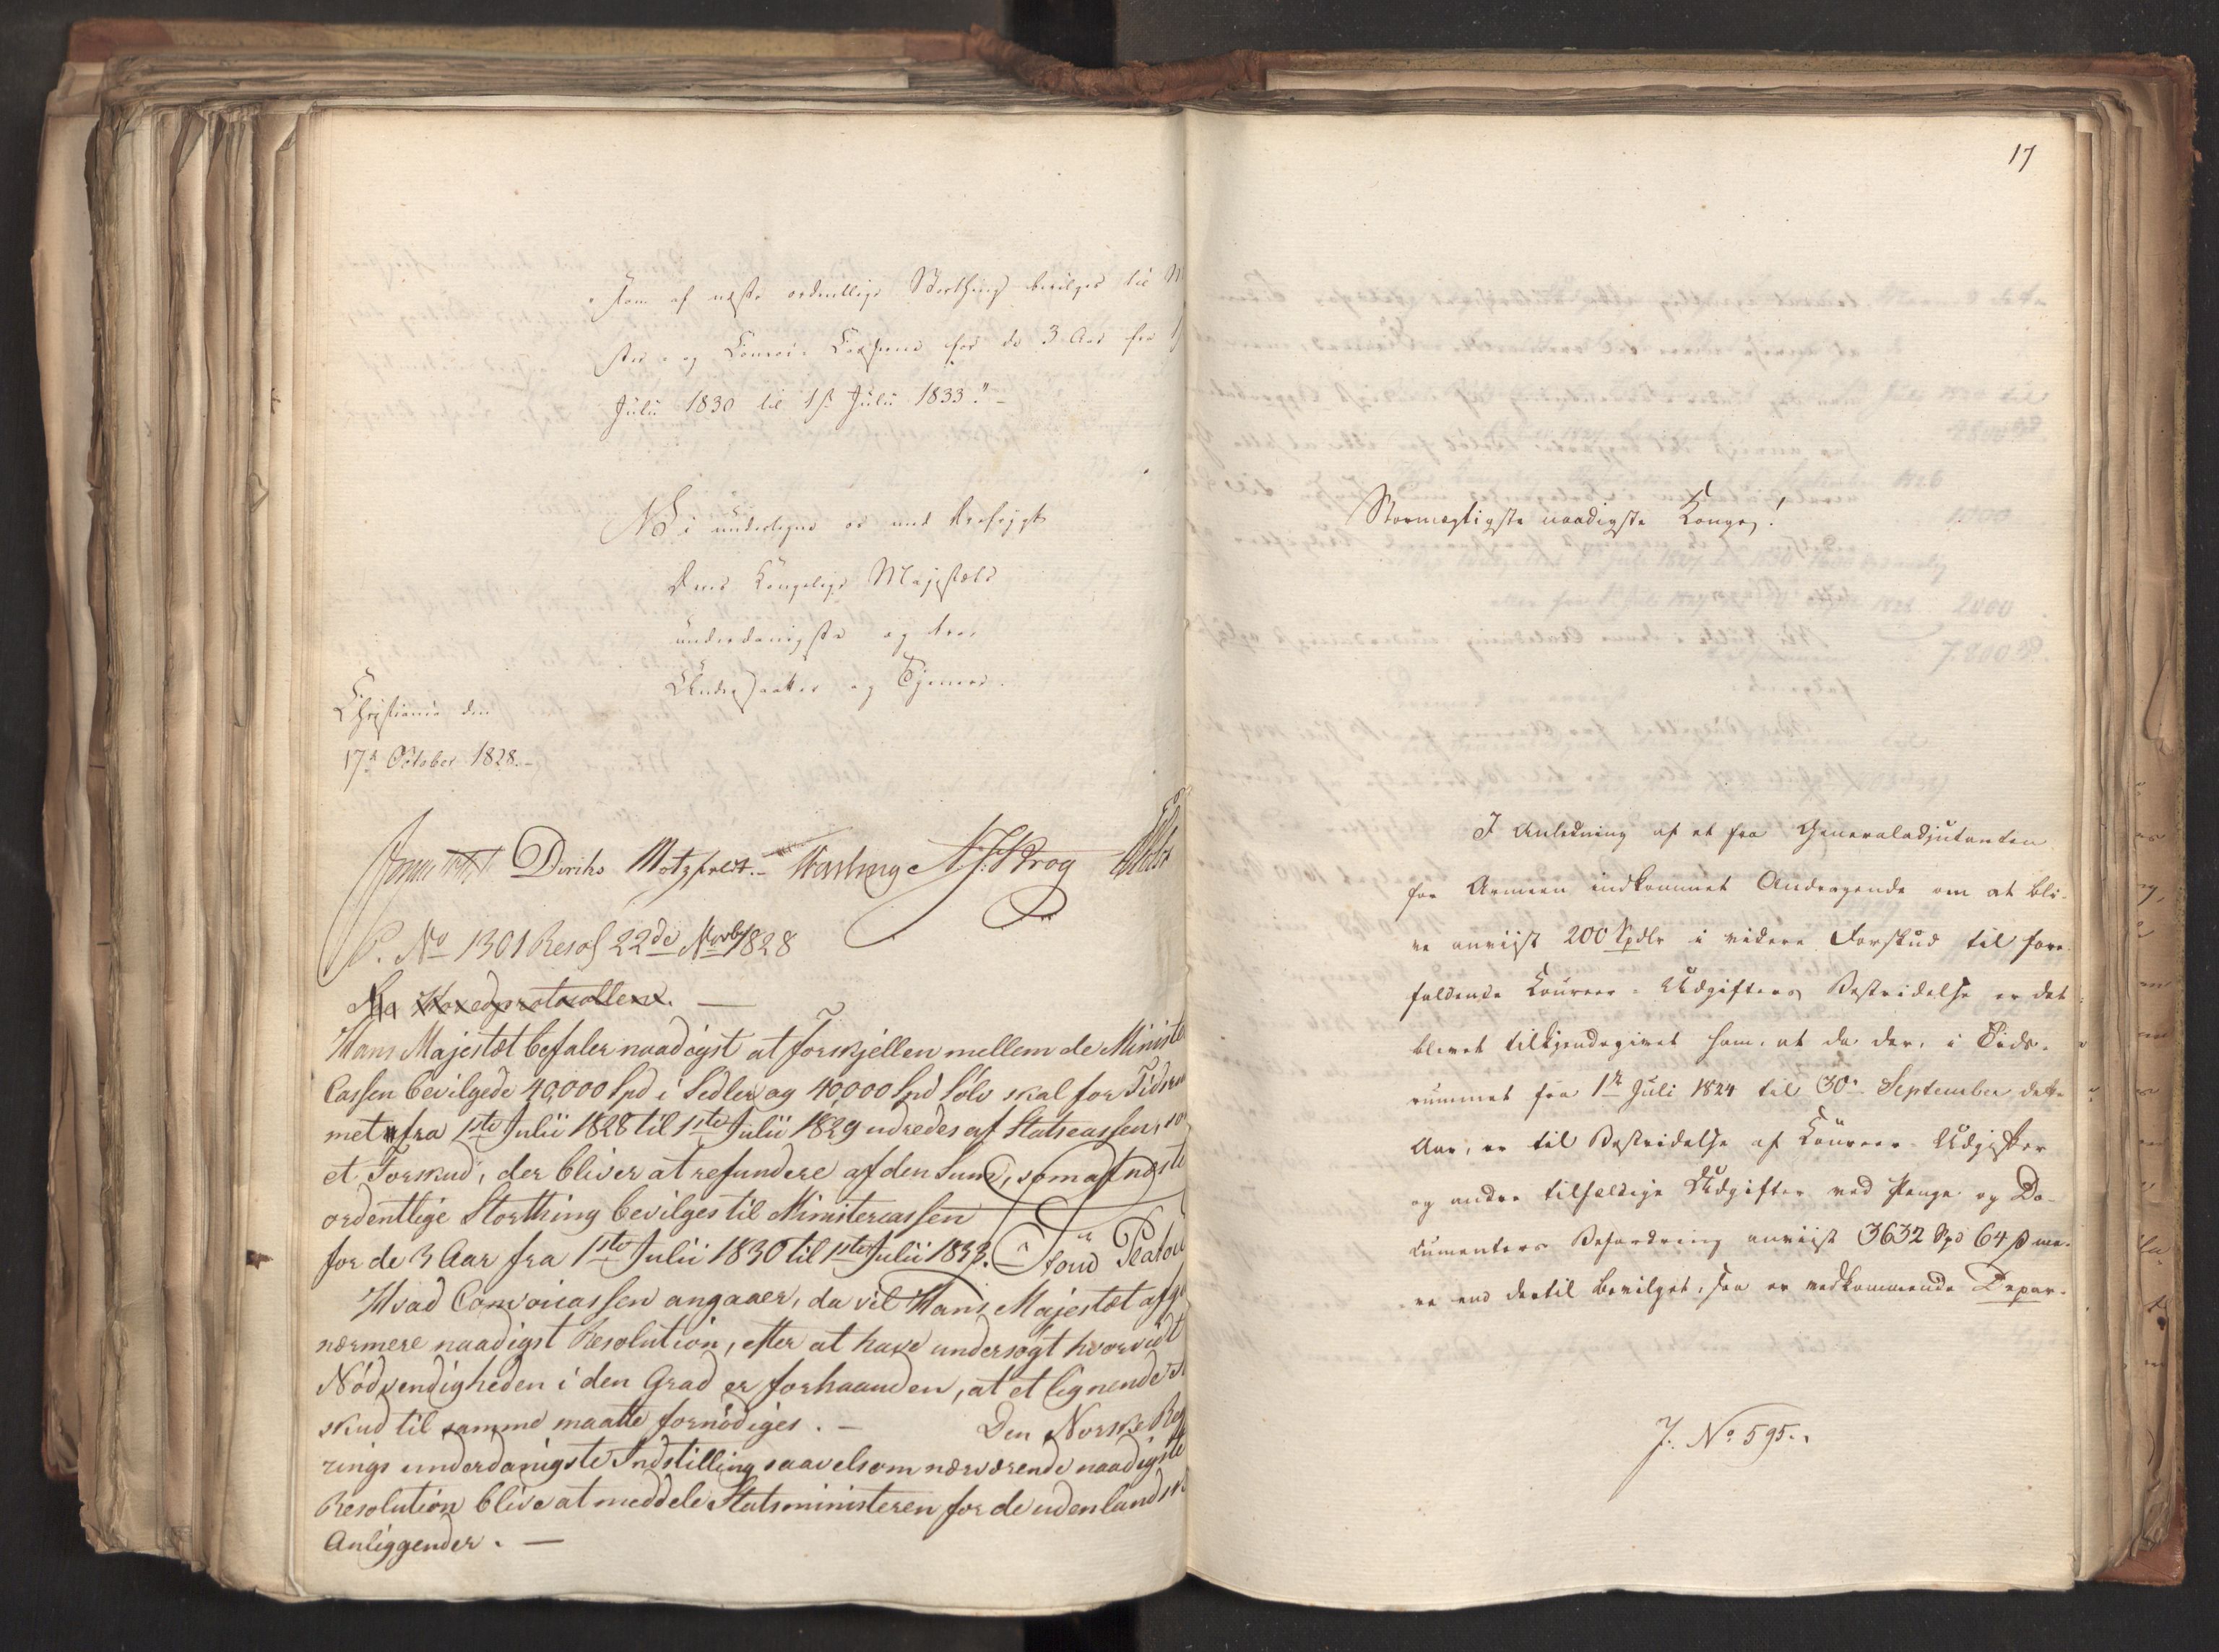 som af næste ordentlige Storthing bevilges til
ster- og Convoi-Casserne for de 3 Aar fra
Julii 1830 til 1ste Julii 1833."
Christiania den
17de October 1828.
Vi undertegne os med Ærefrygt
Deres Kongelige Majestæts
underdanigste og troe
Undersaatter og Tjenere.
Diriks Motzfeldt. N. J. Krog
P. No 1301 Resol 22de Novbr 1828
Hans Majestæt befaler naadigst at forskjellen mellem de Ministe
Cassen bevilgede 40,000 Spd i Sedler og 40,000 Spd Sølv skal for Tidsru
met fra 1ste Julii 1828 til 1ste Julii 1829 udredes af Statscassen, som
et Forskud, der bliver at refundere af den Sum, som af næste
ordentlige Storthing bevilges til Ministercassen
for de 3 Aar fra 1ste Julii 1830 til 1ste Julii 1833.
Hvad Convoicassen angaaer, da vil Hans Majestæt afgi
nærmere naadigst Resolution, efter at have undersøgt hvorvidt
Nödvendigheden i den Grad er forhaanden, at et lignende
skud til samme maatte fornödiges. — Den Norske Reg
rings underdanigste Indstilling saavelsom nærværende naadigste
Resolution blive at meddele Statsministeren for de udenlandsk
Anliggender. —
17
Stormægtigste naadigste Konge!
I Anledning af et fra Generaladjutanten
for Armeen indkommet Andragende om at bli-
ve anviist 200 Spdlr i videre Forskud til fore-
faldende Coureer-Udgifters Bestridelse er det
blevet tilkjendegivet ham, at da der, i Tids-
rummet fra 1ste Juli 1824 til 30te September dette
Aar, er til Bestridelse af Coureer-Udgifter
og andre tilfældige Udgifter ved Penge og Do-
cumenters Befordring anviist 3632 Spd 64 ß me-
re end dertil bevilget, saa er vedkommende Depar-
J. No 595.